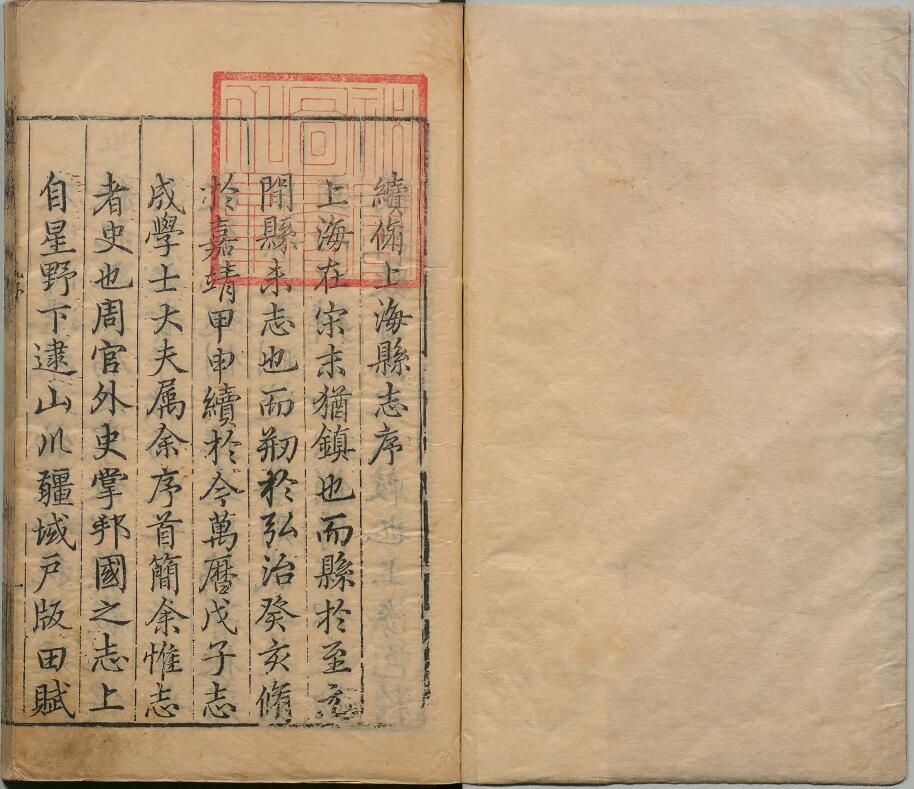 續脩上海縣志序
上海在宋末猶鎮也而縣於至元
間縣未志也而刱於弘治癸亥脩
於嘉靖甲申續於今萬曆戊子志
成學士大夫属余序首簡余惟志
者史也周官外史掌邦國之志上
自星野下逮山川疆域戸版田賦